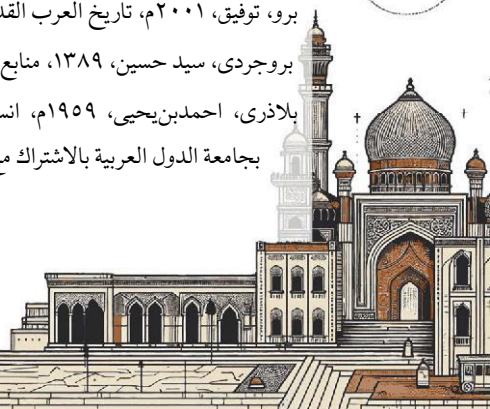 برو، توفیق، ۲۰۰۱م، تاریخ العرب القد
بروجردی، سید حسین، ۱۳۸۹، منابع
بلاذری، احمدبن‌یحیی، ۱۹۵۹م، انس
بجامعة الدول العربية بالاشتراك مع